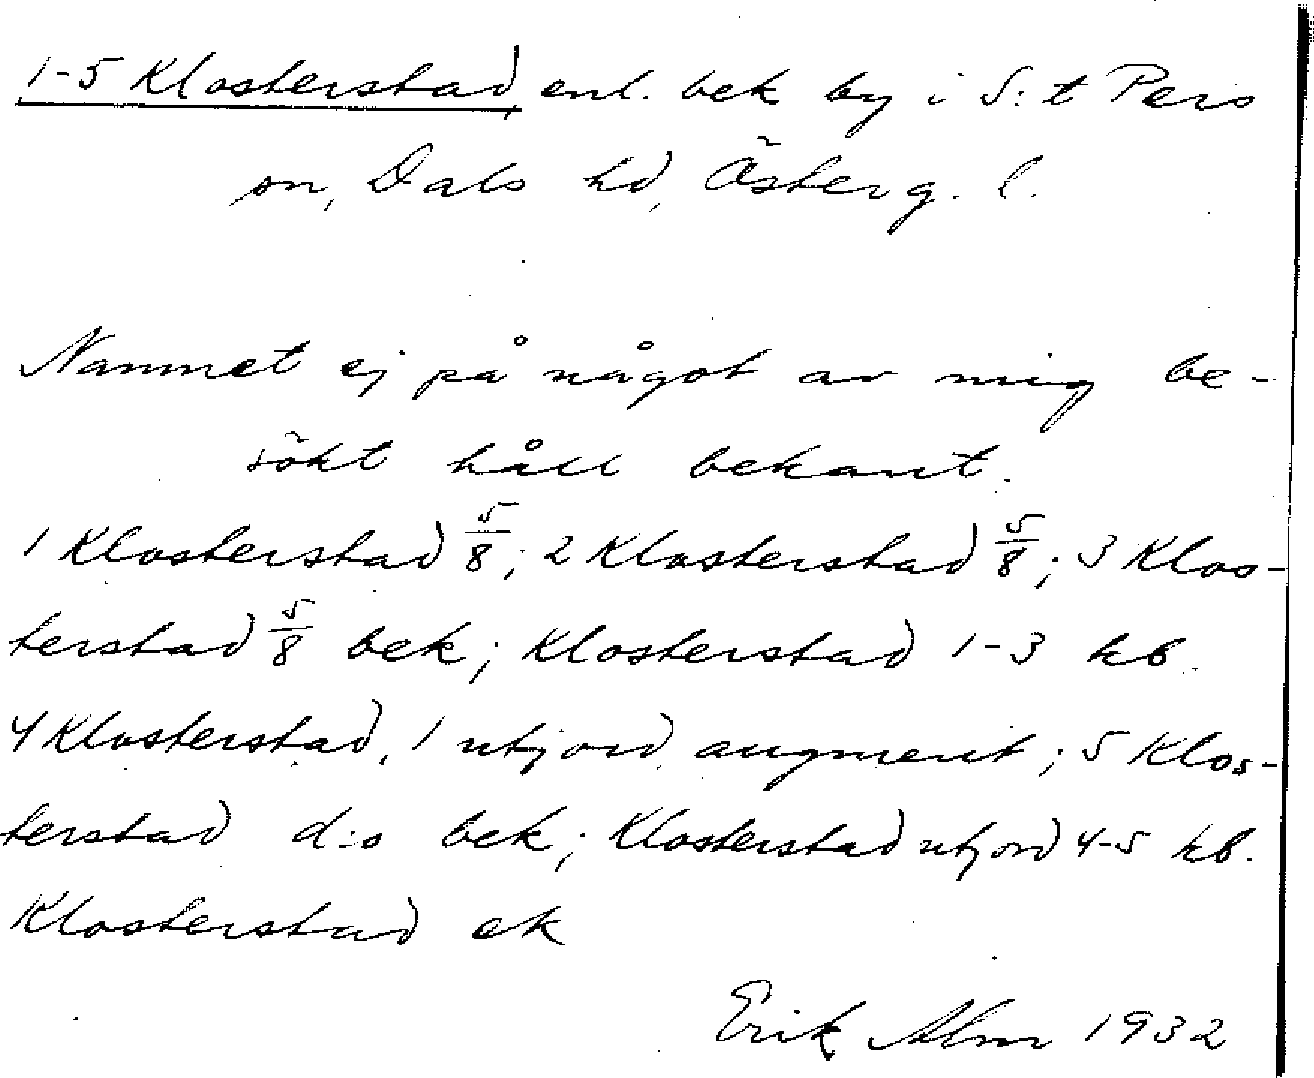 1-5 Klosterstad, enl. bek by i S:t Pers
sn, Dals hd, Österg. l.
Namnet ej på något av mig be-
sökt håll bekant.
1 Klosterstad 5/8; 2 Klosterstad 5/8; 3 Klos-
terstad 5/8 bek; Klosterstad 1-3 kb.
4 Klosterstad, 1 utjord, augment; 5 Klos-
terstad d:o bek; Klosterstad utjord 4-5 kb.
Klosterstad ek
Erik Alm 1932